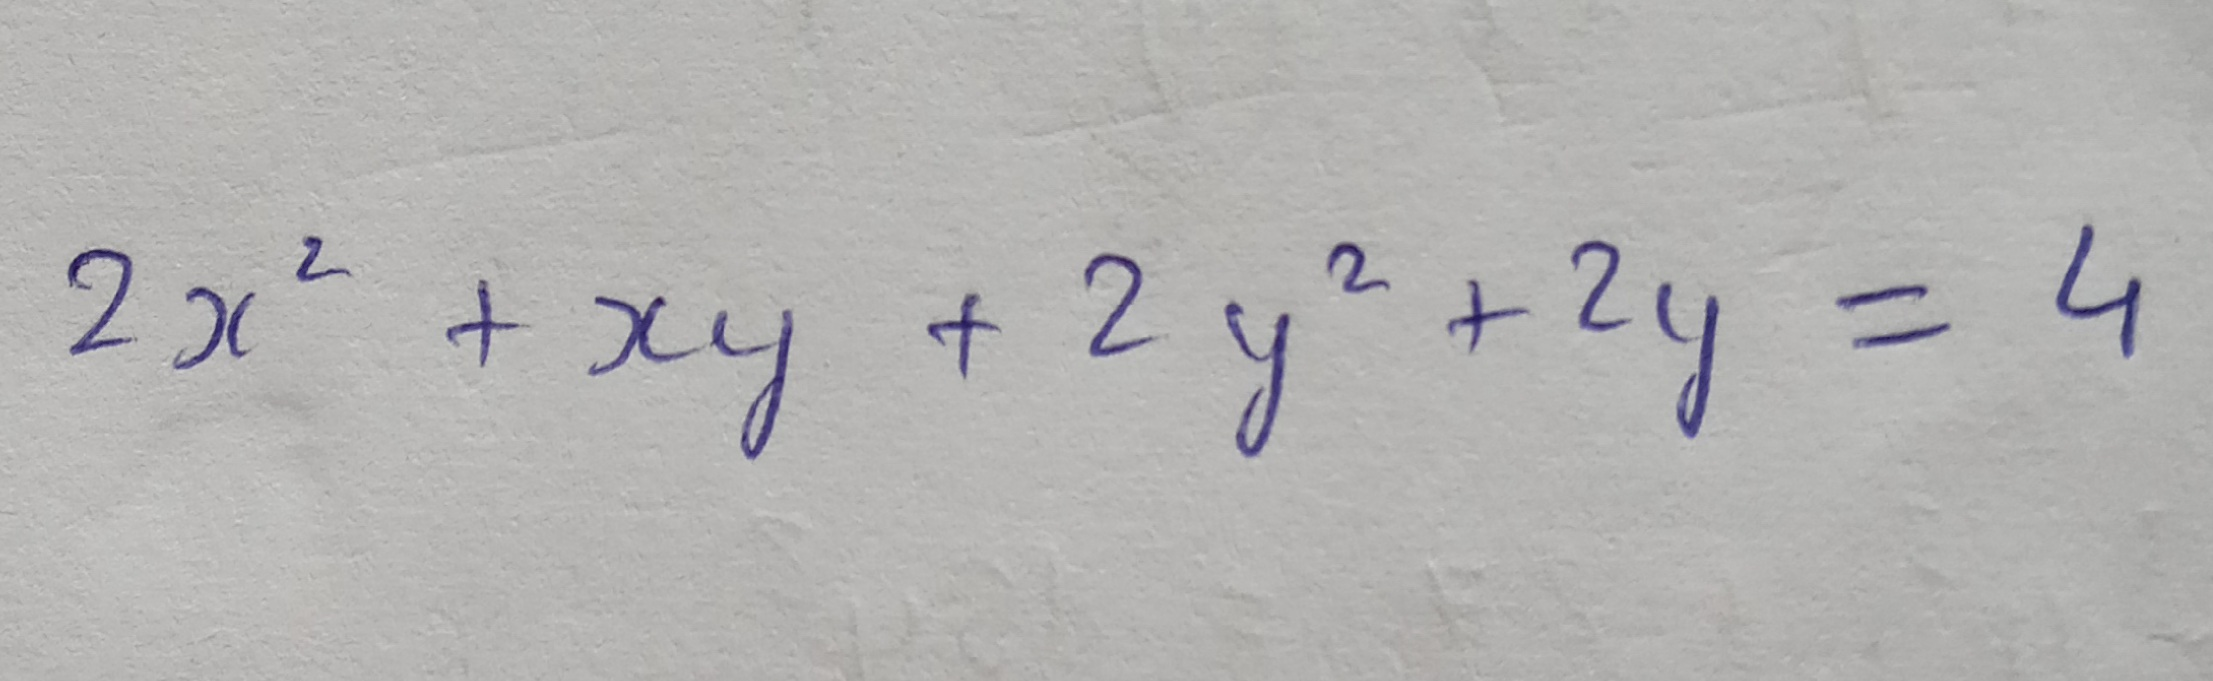 2x² + xy + 2y² + 2y = 4